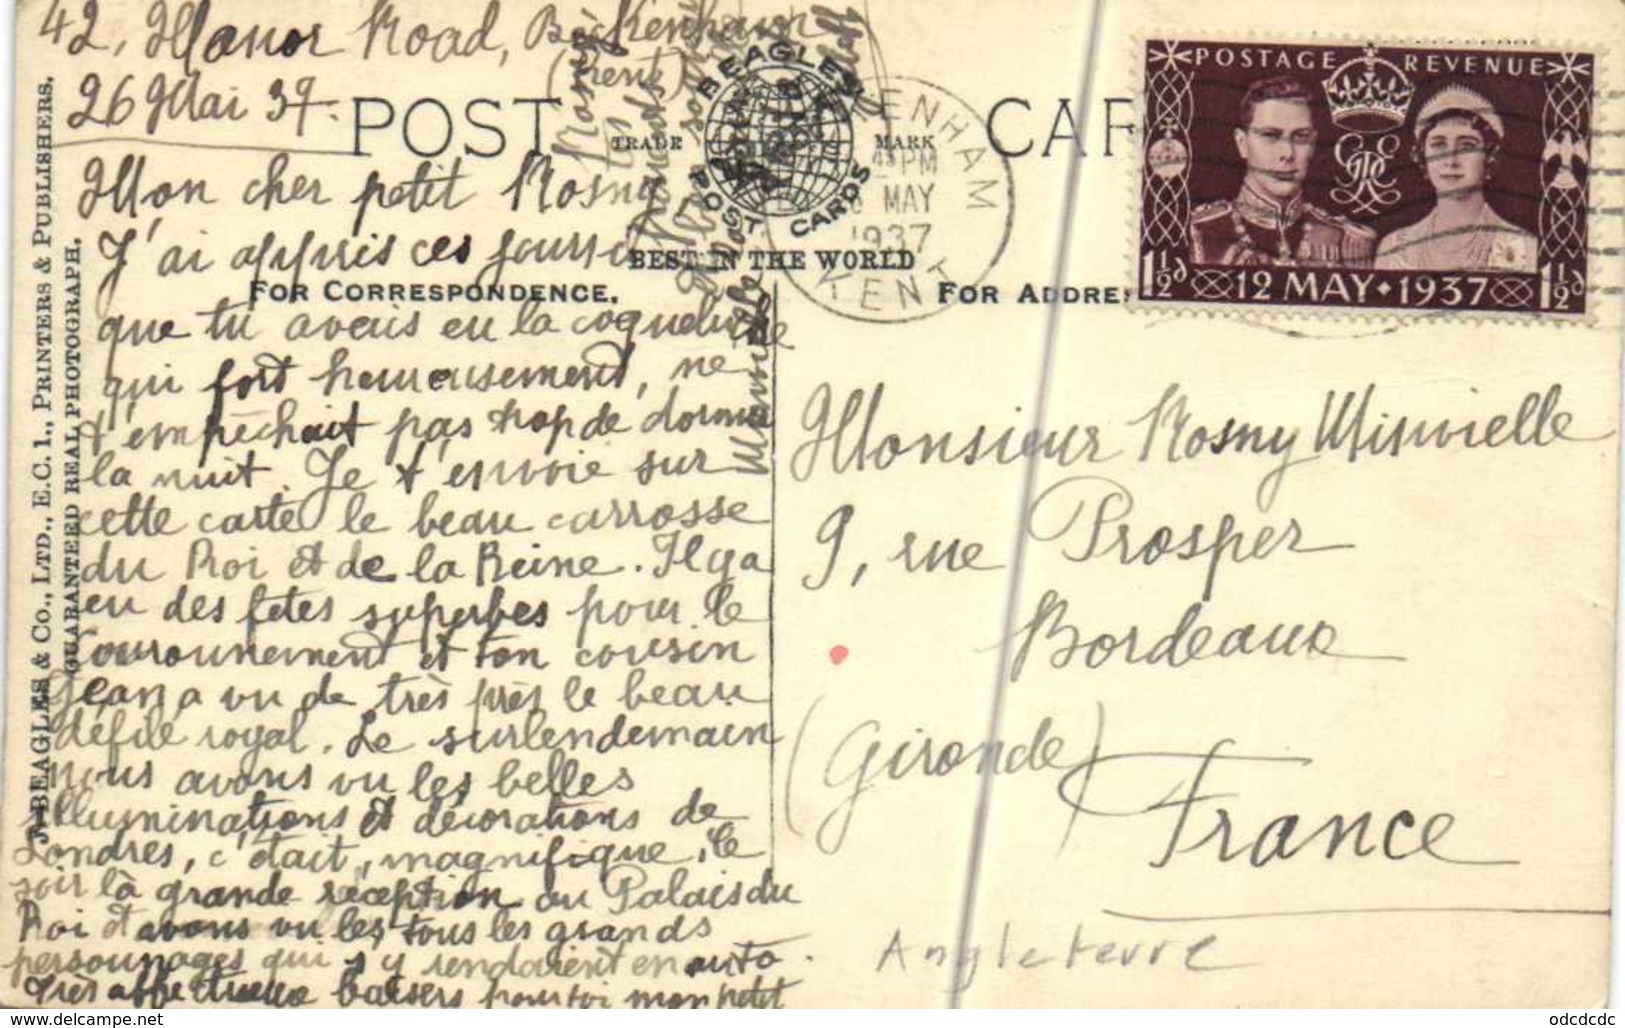 42, Manor Road, Beckenham
(Kent)
26 Mai 37.
Mon cher petit Rosny
J'ai appris ces jours-ci
que tu avais eu la coqueluche
qui fort heureusement, ne
t'empêchait pas trop de dormir
la nuit. Je t'envoie sur
cette carte le beau carrosse
du Roi et de la Reine. Il y a
eu des fêtes superbes pour le
Couronnement et ton cousin
Jean a vu de très près le beau
défilé royal. Le surlendemain
nous avons vu les belles
illuminations et décorations de
Londres, c'était magnifique, le
soir là grande réception au Palais du
Roi et avons vu les tous les grands
personnages qui s'y rendaient en auto.
Très affectueux baisers pour toi mon petit
Rosny
POST CARD
TRADE MARK
BEAGLES'
POST CARDS
BEST IN THE WORLD
FOR CORRESPONDENCE.
FOR ADDRE
J. BEAGLES & CO., LTD., E.C. 1., PRINTERS & PUBLISHERS.
GUARANTEED REAL PHOTOGRAPH.
KENHAM
PM
MAY
1937
KENT
POSTAGE REVENUE
1½d 12 MAY 1937 1½d
Monsieur Rosny Minvielle
9, rue Prosper
Bordeaux
(Gironde)
France
Angleterre
www.delcampe.net
odcdcdc